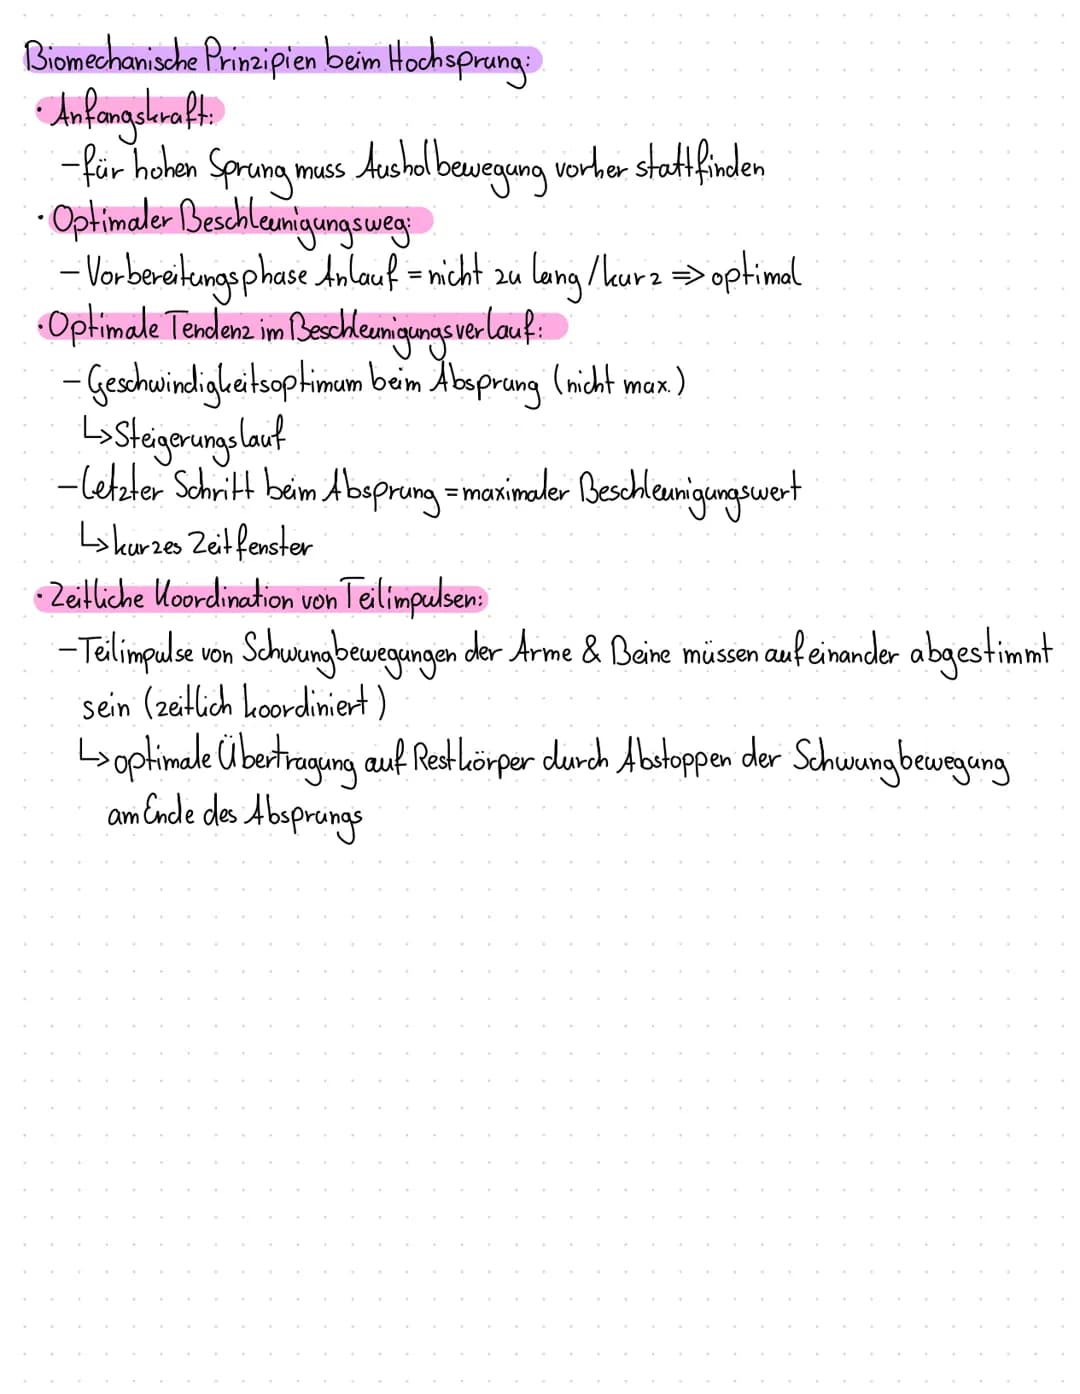 Biomechanische Prinzipien beim Hochsprung:
• Anfangskraft:
- für hohen Sprung muss Ausholbewegung vorher stattfinden
• Optimaler Beschleunigungsweg:
- Vorbereitungsphase Anlauf = nicht zu lang / kurz => optimal
• Optimale Tendenz im Beschleunigungsverlauf:
- Geschwindigkeitsoptimum beim Absprung (nicht max.)
↳ Steigerungslauf
- letzter Schritt beim Absprung = maximaler Beschleunigungswert
↳ kurzes Zeitfenster
• Zeitliche Koordination von Teilimpulsen:
- Teilimpulse von Schwungbewegungen der Arme & Beine müssen aufeinander abgestimmt
sein (zeitlich koordiniert)
↳ optimale Übertragung auf Restkörper durch Abstoppen der Schwungbewegung
am Ende des Absprungs